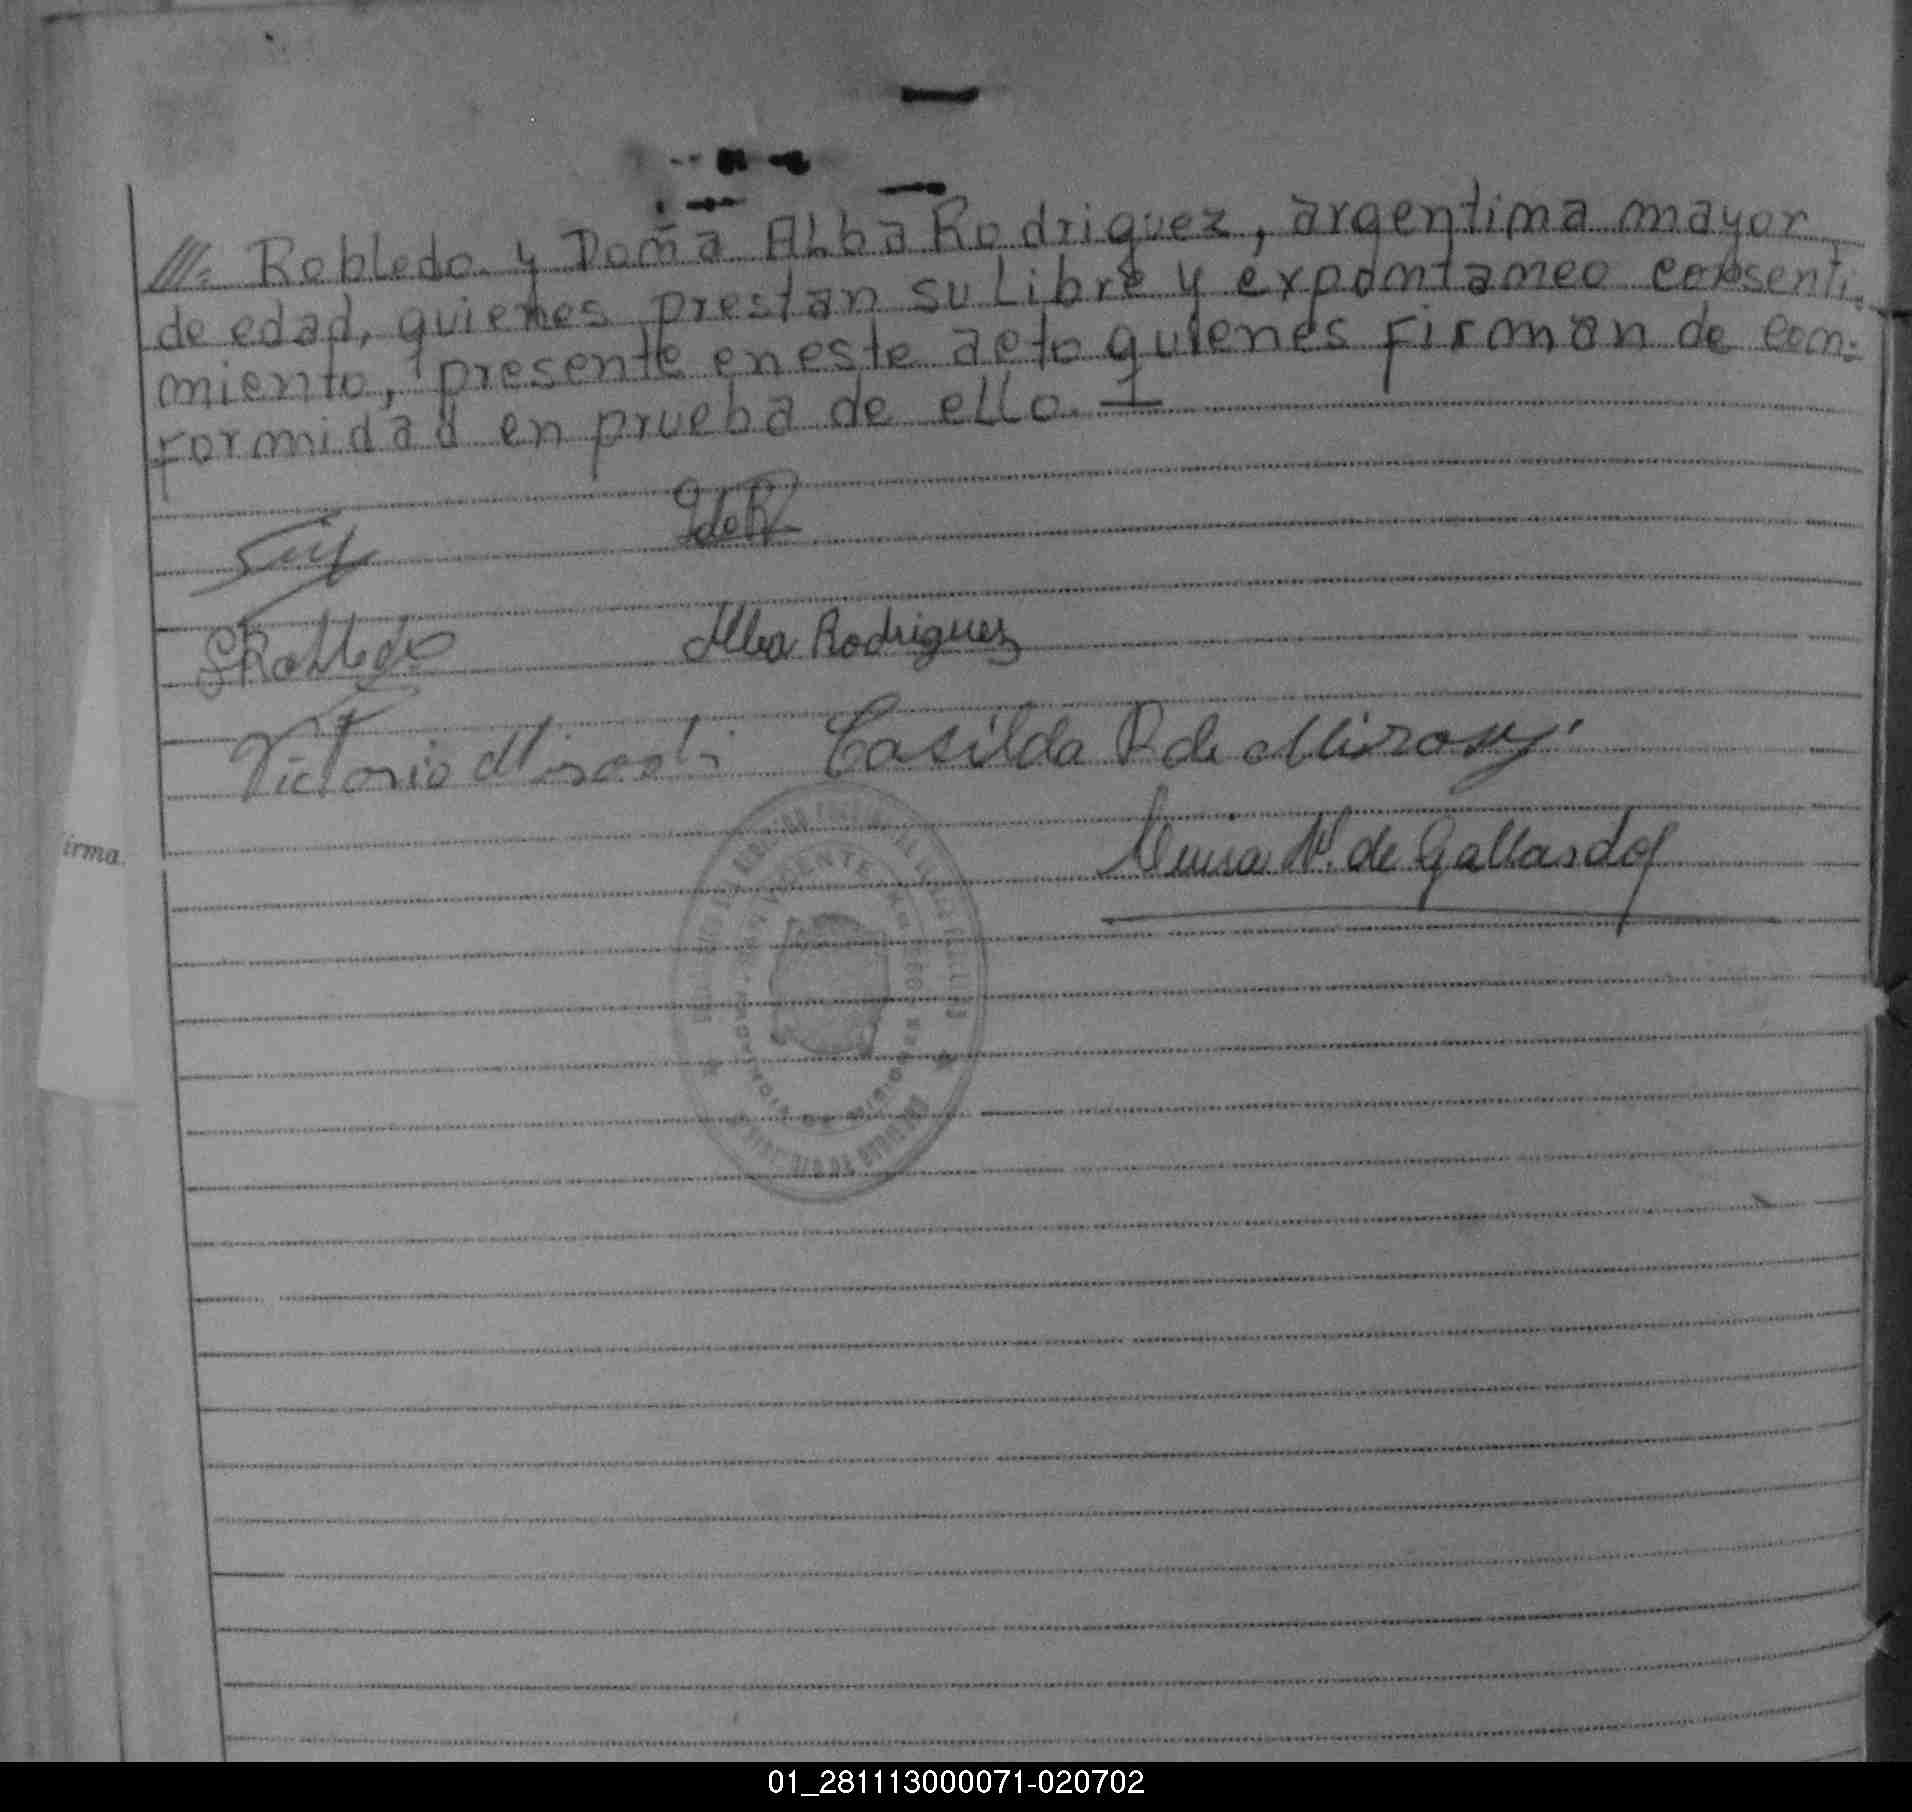 ///= Robledo y Doña Alba Rodriguez, argentina mayor
de edad, quienes prestan su Libre y expontaneo consenti-
miento, presente en este acto quienes firman de con=
formidad en prueba de ello.
IdeR
SRobledo Alba Rodriguez
Victorio Casilda R de
N. de Gallardo
irma.
SAN VICENTE
PROVINCIA DE MISIONES
01_281113000071-020702